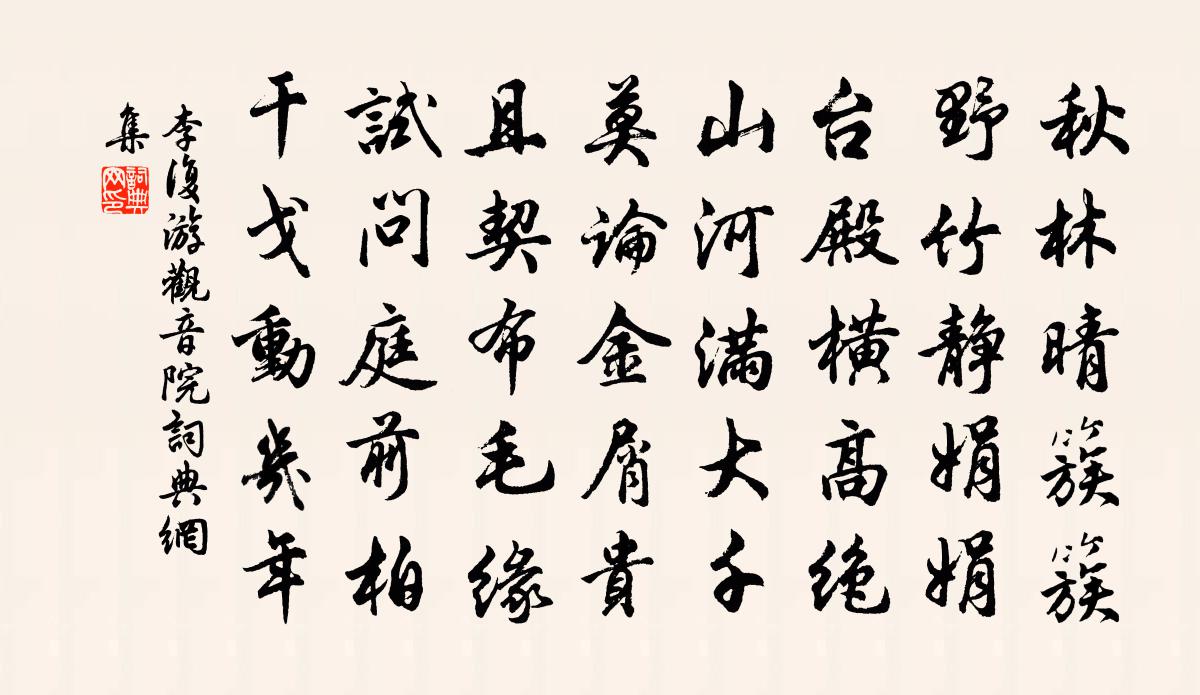 秋林晴簇簇
野竹静娟娟
台殿橫高绝
山河满大千
莫论金屑貴
且契布毛缘
試问庭前柏
干戈動幾年
李復游觀音院詞典網
集
詞典
网印